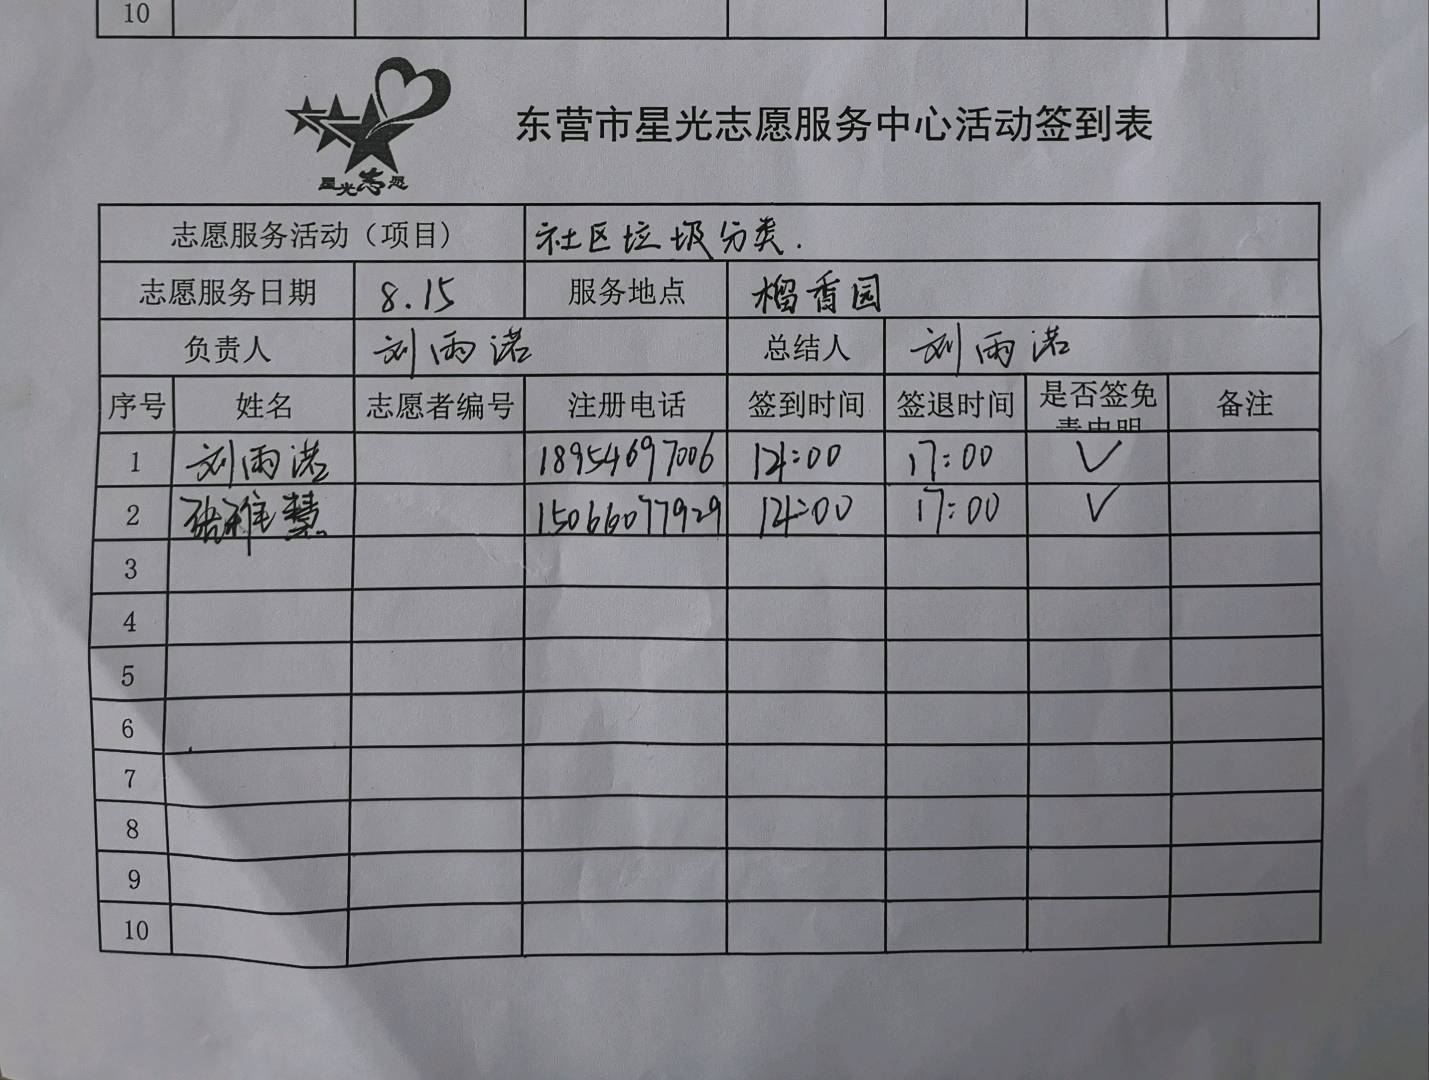 10
星光志愿
东营市星光志愿服务中心活动签到表
志愿服务活动（项目） 社区垃圾分类.
志愿服务日期 8.15 服务地点 榴香园
负责人 刘雨诺 总结人 刘雨诺
序号 姓名 志愿者编号 注册电话 签到时间 签退时间 是否签免责申明 备注
1 刘雨诺 18954697006 14:00 17:00 ✓
2 张雅慧 15066077929 14:00 17:00 ✓
3
4
5
6
7
8
9
10